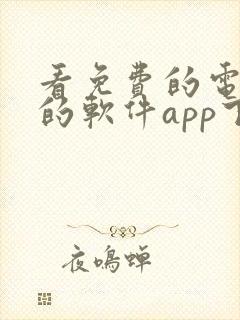 看免費的電
的軟件app下
夜鳴蟬